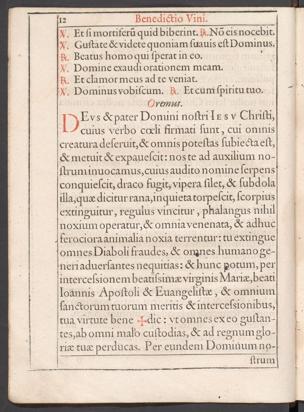 12 Benedictio Vini.
V. Et si mortiferũ quid biberint. R. Nõ eis nocebit.
V. Gustate & videte quoniam suauis est Dominus.
R. Beatus homo qui sperat in eo.
V. Domine exaudi orationem meam.
R. Et clamor meus ad te veniat.
V. Dominus vobiscum. R. Et cum spiritu tuo.
Oremus.
DEVS & pater Domini nostri IESV Christi,
cuius verbo cœli firmati sunt, cui omnis
creatura deseruit, & omnis potestas subiecta est,
& metuit & expauescit: nos te ad auxilium no-
strum inuocamus, cuius audito nomine serpens
conquiescit, draco fugit, vipera silet, & subdola
illa, quæ dicitur rana, inquieta torpescit, scorpius
extinguitur, regulus vincitur, phalangus nihil
noxium operatur, & omnia venenata, & adhuc
ferociora animalia noxia terrentur: tu extingue
omnes Diaboli fraudes, & omnes humano ge-
neri aduersantes nequitias: & hunc potum, per
intercessionem beatissimæ virginis Mariæ, beati
Ioãnnis Apostoli & Euangelistæ, & omnium
sanctorum tuorum meritis & intercessionibus,
tua virtute bene ✠ dic: vt omnes ex eo gustan-
tes, ab omni malo custodias, & ad regnum glo-
riæ tuæ perducas. Per eundem Dominum no-
strum